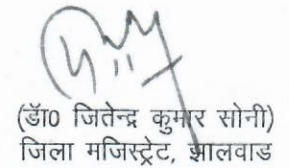 (डॅा0 जितेन्द्र कुमार सोनी)
जिला मजिस्ट्रेट, झालवाड